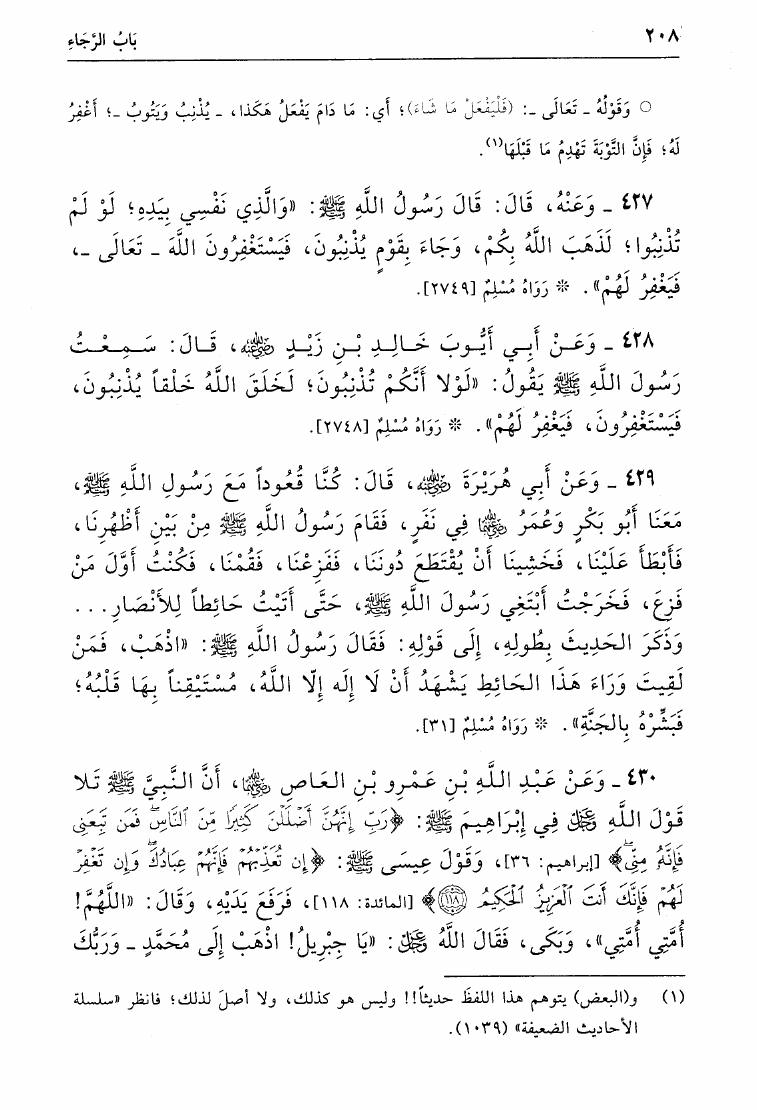 ٢٠٨ بَابُ الرَّجَاءِ
○ وَقَوْلُهُ ـ تَعَالَى ـ: (فَلْيَفْعَلْ مَا شَاءَ)؛ أَي: مَا دَامَ يَفْعَلُ هَكَذا، ـ يُذْنِبُ وَيَتُوبُ ـ؛ أَغْفِرُ
لَهُ؛ فَإِنَّ التَّوْبَةَ تَهْدِمُ مَا قَبْلَهَا(١).
٤٢٧ ـ وَعَنْهُ، قَالَ: قَالَ رَسُولُ اللَّهِ ﷺ: «وَالَّذِي نَفْسِي بِيَدِهِ؛ لَوْ لَمْ
تُذْنِبُوا؛ لَذَهَبَ اللَّهُ بِكُمْ، وَجَاءَ بِقَوْمٍ يُذْنِبُونَ، فَيَسْتَغْفِرُونَ اللَّهَ ـ تَعَالَى ـ،
فَيَغْفِرُ لَهُمْ». * رَوَاهُ مُسْلِمٌ [٢٧٤٩].
٤٢٨ ـ وَعَنْ أَبِي أَيُّوبَ خَالِدِ بْنِ زَيْدٍ رضي الله عنه، قَالَ: سَمِعْتُ
رَسُولَ اللَّهِ ﷺ يَقُولُ: «لَوْلا أَنَّكُمْ تُذْنِبُونَ؛ لَخَلَقَ اللَّهُ خَلْقاً يُذْنِبُونَ،
فَيَسْتَغْفِرُونَ، فَيَغْفِرُ لَهُمْ». * رَوَاهُ مُسْلِمٌ [٢٧٤٨].
٤٢٩ ـ وَعَنْ أَبِي هُرَيْرَةَ رضي الله عنه، قَالَ: كُنَّا قُعُوداً مَعَ رَسُولِ اللَّهِ ﷺ،
مَعَنَا أَبُو بَكْرٍ وَعُمَرُ رضي الله عنهما فِي نَفَرٍ، فَقَامَ رَسُولُ اللَّهِ ﷺ مِنْ بَيْنِ أَظْهُرِنَا،
فَأَبْطَأَ عَلَيْنَا، فَخَشِينَا أَنْ يُقْتَطَعَ دُونَنَا، فَفَزِعْنَا، فَقُمْنَا، فَكُنْتُ أَوَّلَ مَنْ
فَزِعَ، فَخَرَجْتُ أَبْتَغِي رَسُولَ اللَّهِ ﷺ، حَتَّى أَتَيْتُ حَائِطاً لِلأَنْصَارِ...
وَذَكَرَ الحَدِيثَ بِطُولِهِ، إِلَى قَوْلِهِ: فَقَالَ رَسُولُ اللَّهِ ﷺ: «اذْهَبْ، فَمَنْ
لَقِيتَ وَرَاءَ هَذَا الحَائِطِ يَشْهَدُ أَنْ لَا إِلَه إِلّا اللَّهُ، مُسْتَيْقِناً بِهَا قَلْبُهُ؛
فَبَشِّرْهُ بِالجَنَّةِ». * رَوَاهُ مُسْلِمٌ [٣١].
٤٣٠ ـ وَعَنْ عَبْدِ اللَّهِ بْنِ عَمْرِو بْنِ العَاصِ رضي الله عنهما، أَنَّ النَّبِيَّ ﷺ تَلا
قَوْلَ اللَّهِ عز وجل فِي إِبْرَاهِيمَ ﷺ: ﴿رَبِّ إِنَّهُنَّ أَضْلَلْنَ كَثِيرًا مِّنَ ٱلنَّاسِۖ فَمَن تَبِعَنِي
فَإِنَّهُۥ مِنِّيۖ﴾ [إبراهيم: ٣٦]، وَقَوْلَ عِيسَى ﷺ: ﴿إِن تُعَذِّبْهُمْ فَإِنَّهُمْ عِبَادُكَۖ وَإِن تَغْفِرْ
لَهُمْ فَإِنَّكَ أَنتَ ٱلْعَزِيزُ ٱلْحَكِيمُ ١١٨﴾ [المائدة: ١١٨]، فَرَفَعَ يَدَيْهِ، وَقَالَ: «اللَّهُمَّ!
أُمَّتِي أُمَّتِي»، وَبَكَى، فَقَالَ اللَّهُ عز وجل: «يَا جِبْرِيلُ! اذْهَبْ إِلَى مُحَمَّدٍ ـ وَرَبُّكَ
(١) و(البعض) يتوهم هذا اللفظَ حديثاً!! وليس هو كذلك، ولا أصلَ لذلك؛ فانظر «سلسلة
الأحاديث الضعيفة» (١٠٣٩).